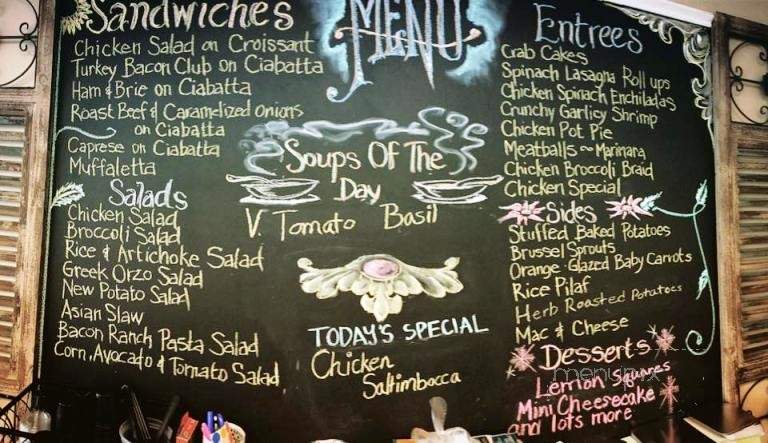 Sandwiches
Chicken Salad on Croissant
Turkey Bacon Club on Ciabatta
Ham & Brie on Ciabatta
Roast Beef & Caramelized onions
on Ciabatta
Caprese on Ciabatta
Muffaletta
Salads
Chicken Salad
Broccoli Salad
Rice & Artichoke Salad
Greek Orzo Salad
New Potato Salad
Asian Slaw
Bacon Ranch Pasta Salad
Corn, Avocado & Tomato Salad
MENU
Soups Of The
Day
V. Tomato Basil
TODAY'S SPECIAL
Chicken
Saltimbocca
Entrees
Crab Cakes
Spinach Lasagna Roll ups
Chicken Spinach Enchiladas
Crunchy Garlicy Shrimp
Chicken Pot Pie
Meatballs ~ Marinara
Chicken Broccoli Braid
Chicken Special
Sides
Stuffed Baked Potatoes
Brussel Sprouts
Orange-Glazed Baby Carrots
Rice Pilaf
Herb Roasted Potatoes
Mac & Cheese
Desserts
Lemon Squares
Mini Cheesecake
and lots more